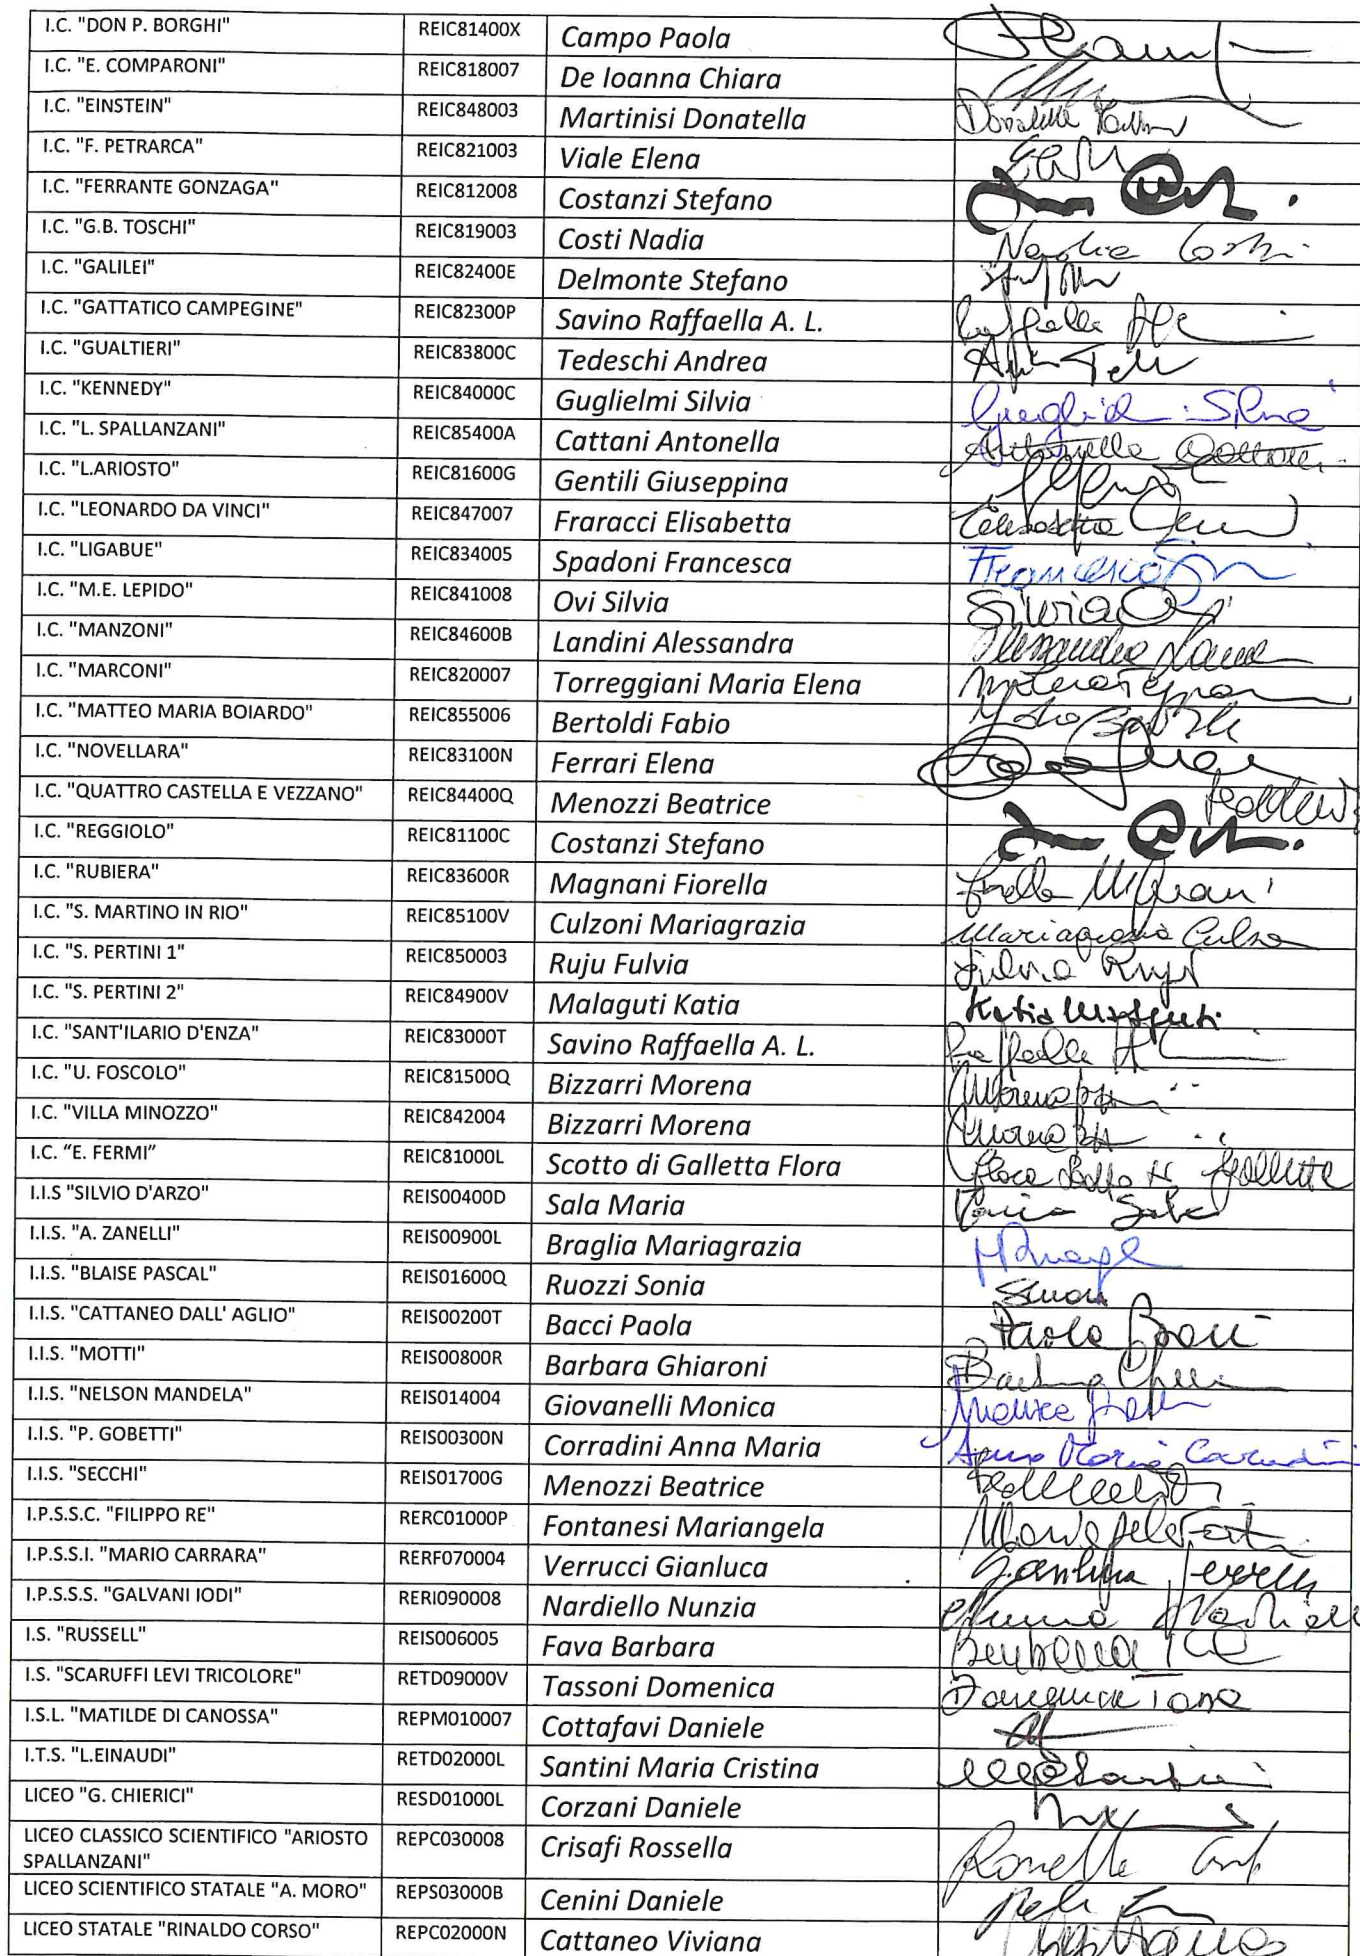 I.C. "DON P. BORGHI" REIC81400X Campo Paola
I.C. "E. COMPARONI" REIC818007 De Ioanna Chiara
I.C. "EINSTEIN" REIC848003 Martinisi Donatella Donatella
I.C. "F. PETRARCA" REIC821003 Viale Elena
I.C. "FERRANTE GONZAGA" REIC812008 Costanzi Stefano
I.C. "G.B. TOSCHI" REIC819003 Costi Nadia Nadia Costi
I.C. "GALILEI" REIC82400E Delmonte Stefano
I.C. "GATTATICO CAMPEGINE" REIC82300P Savino Raffaella A. L.
I.C. "GUALTIERI" REIC83800C Tedeschi Andrea
I.C. "KENNEDY" REIC84000C Guglielmi Silvia
I.C. "L. SPALLANZANI" REIC85400A Cattani Antonella Antonella Cattani
I.C. "L.ARIOSTO" REIC81600G Gentili Giuseppina
I.C. "LEONARDO DA VINCI" REIC847007 Fraracci Elisabetta
I.C. "LIGABUE" REIC834005 Spadoni Francesca Francesca
I.C. "M.E. LEPIDO" REIC841008 Ovi Silvia Silvia Ovi
I.C. "MANZONI" REIC84600B Landini Alessandra Alessandra
I.C. "MARCONI" REIC820007 Torreggiani Maria Elena
I.C. "MATTEO MARIA BOIARDO" REIC855006 Bertoldi Fabio
I.C. "NOVELLARA" REIC83100N Ferrari Elena
I.C. "QUATTRO CASTELLA E VEZZANO" REIC84400Q Menozzi Beatrice
I.C. "REGGIOLO" REIC81100C Costanzi Stefano
I.C. "RUBIERA" REIC83600R Magnani Fiorella
I.C. "S. MARTINO IN RIO" REIC85100V Culzoni Mariagrazia Mariagrazia
I.C. "S. PERTINI 1" REIC850003 Ruju Fulvia Fulvia Ruju
I.C. "S. PERTINI 2" REIC84900V Malaguti Katia Katia Malaguti
I.C. "SANT'ILARIO D'ENZA" REIC83000T Savino Raffaella A. L.
I.C. "U. FOSCOLO" REIC81500Q Bizzarri Morena
I.C. "VILLA MINOZZO" REIC842004 Bizzarri Morena
I.C. “E. FERMI” REIC81000L Scotto di Galletta Flora
I.I.S "SILVIO D'ARZO" REIS00400D Sala Maria Maria Sala
I.I.S. "A. ZANELLI" REIS00900L Braglia Mariagrazia
I.I.S. "BLAISE PASCAL" REIS01600Q Ruozzi Sonia
I.I.S. "CATTANEO DALL' AGLIO" REIS00200T Bacci Paola Paola Bacci
I.I.S. "MOTTI" REIS00800R Barbara Ghiaroni
I.I.S. "NELSON MANDELA" REIS014004 Giovanelli Monica Monica
I.I.S. "P. GOBETTI" REIS00300N Corradini Anna Maria Anna Maria Corradini
I.I.S. "SECCHI" REIS01700G Menozzi Beatrice
I.P.S.S.C. "FILIPPO RE" RERC01000P Fontanesi Mariangela
I.P.S.S.I. "MARIO CARRARA" RERF070004 Verrucci Gianluca Gianluca
I.P.S.S.S. "GALVANI IODI" RERI090008 Nardiello Nunzia
I.S. "RUSSELL" REIS006005 Fava Barbara
I.S. "SCARUFFI LEVI TRICOLORE" RETD09000V Tassoni Domenica
I.S.L. "MATILDE DI CANOSSA" REPM010007 Cottafavi Daniele
I.T.S. "L.EINAUDI" RETD02000L Santini Maria Cristina
LICEO "G. CHIERICI" RESD01000L Corzani Daniele
LICEO CLASSICO SCIENTIFICO "ARIOSTO REPC030008 Crisafi Rossella
SPALLANZANI"
LICEO SCIENTIFICO STATALE "A. MORO" REPS03000B Cenini Daniele
LICEO STATALE "RINALDO CORSO" REPC02000N Cattaneo Viviana